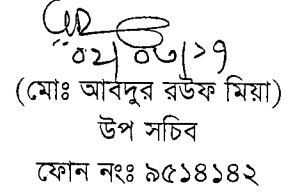 ০২/০৩/১৭
(মোঃ আবদুর রউফ মিয়া)
উপ সচিব
ফোন নং৪ ৯৫১৪১৪২